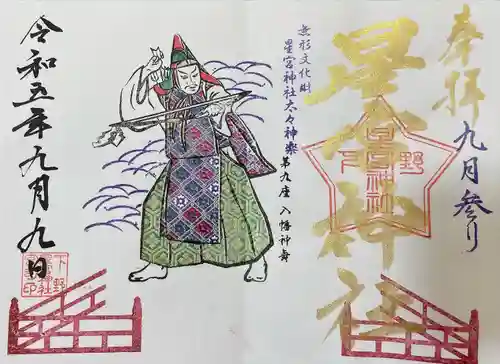 奉拝
九月参り
星宮神社
無形文化財
星宮神社太々神楽
第九座 八幡神舞
令和五年九月九日
下野
星宮神社